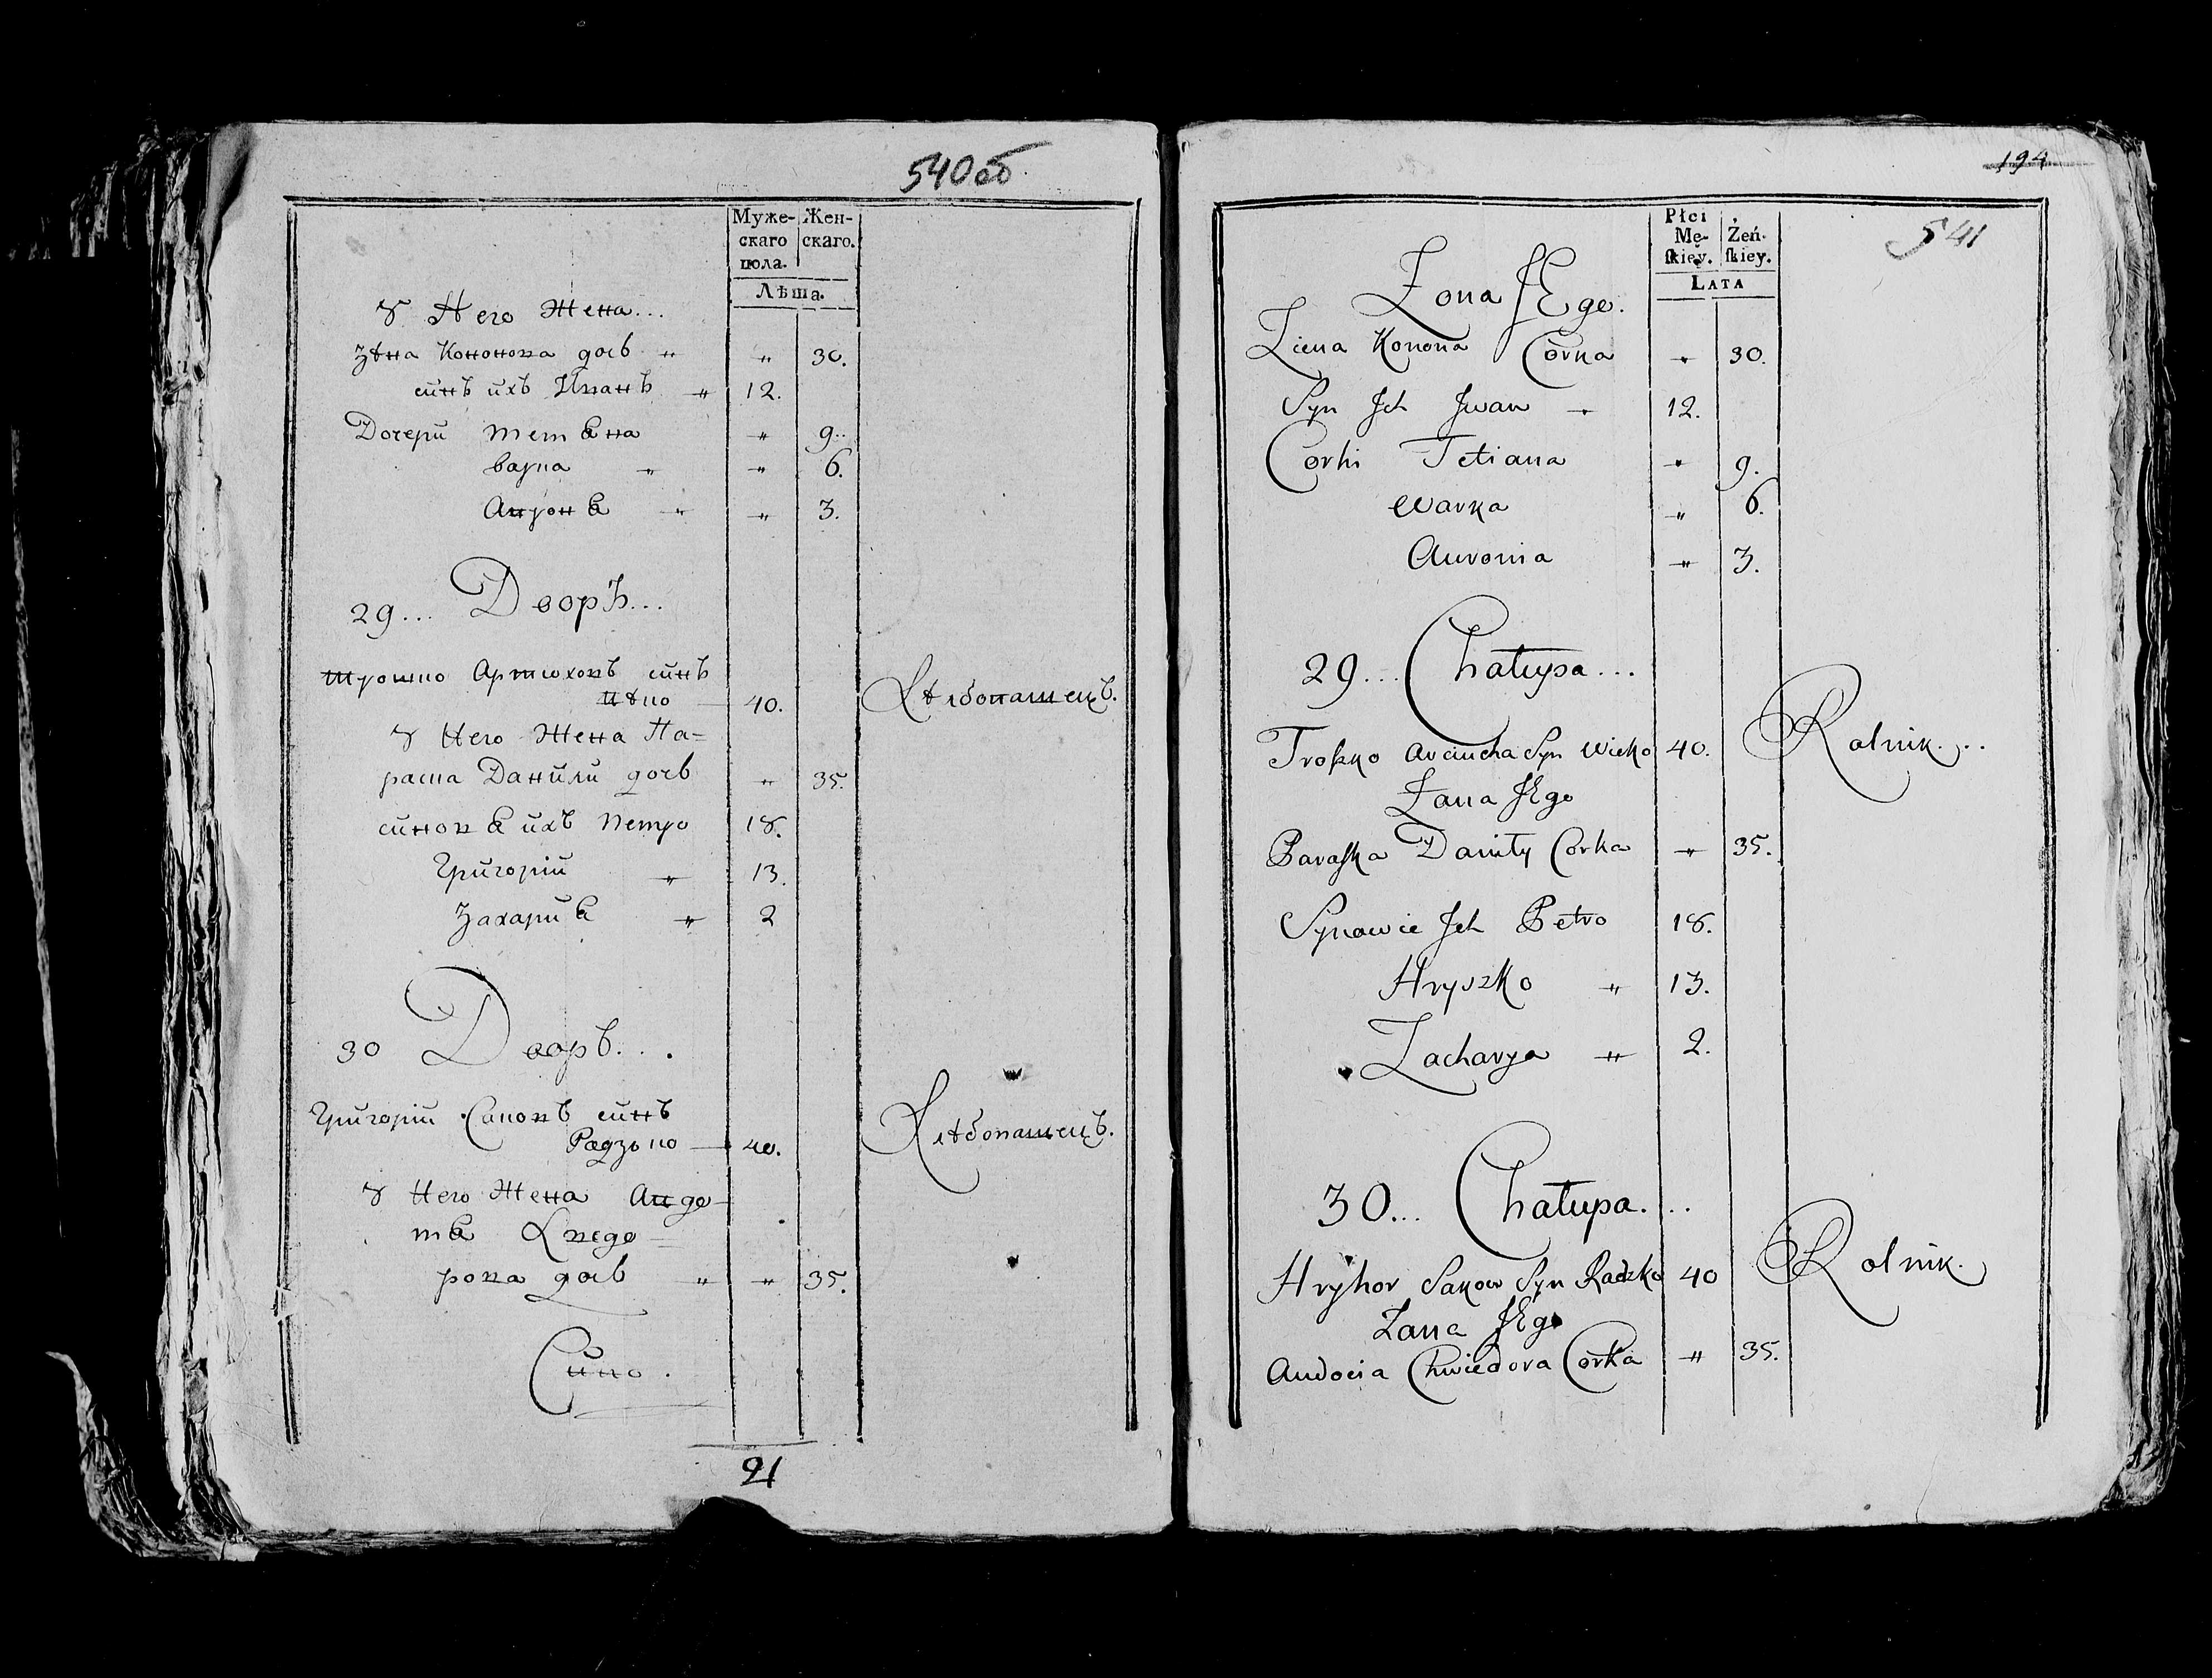 540 об
Муже- Жен-
скаго скаго.
пола.
Лѣта.
У Него Жена...
Зѣна Кононова дочь " " 30.
синъ ихъ Иванъ " 12.
Дочери Тетѣна " 9..
варка " " 6.
Авронѣ " " 3.
29... Дворъ...
Трошко Артюховъ синъ
40. Хлѣбопашецъ.
У Него Жена Па=
раска Данили дочь " 35.
синовѣ ихъ Петро 18.
Григорій " 13.
Захариѣ " 2
30 Дворъ...
Григорій Саковъ синъ
Радзько 40. Хлѣбопашецъ.
У Него Жена Авдо-
тѣ Хведо=
рова дочь " " 35.
Сино.
21
194
541
Płci
Mę- Żeń-
ſkiey. ſkiey.
LATA
Zona JEgo.
Ziena Konona Córka " 30.
Syn Jch Jwan " 12.
Corki Tetiana " 9.
Warka " 6.
Auronia " 3.
29... Chałupa...
Troſzko Arciucha Syn Wieko 40. Rolnik...
Zana JEgo
Paraſka Daniły Corka " 35.
Synowie Jch Petro 18.
Hryszko " 13.
Zacharya " 2.
30... Chałupa...
Hryhor Sakow Syn Radzko 40 Rolnik.
Zana JEgo
Audocia Chwiedora Córka " 35.